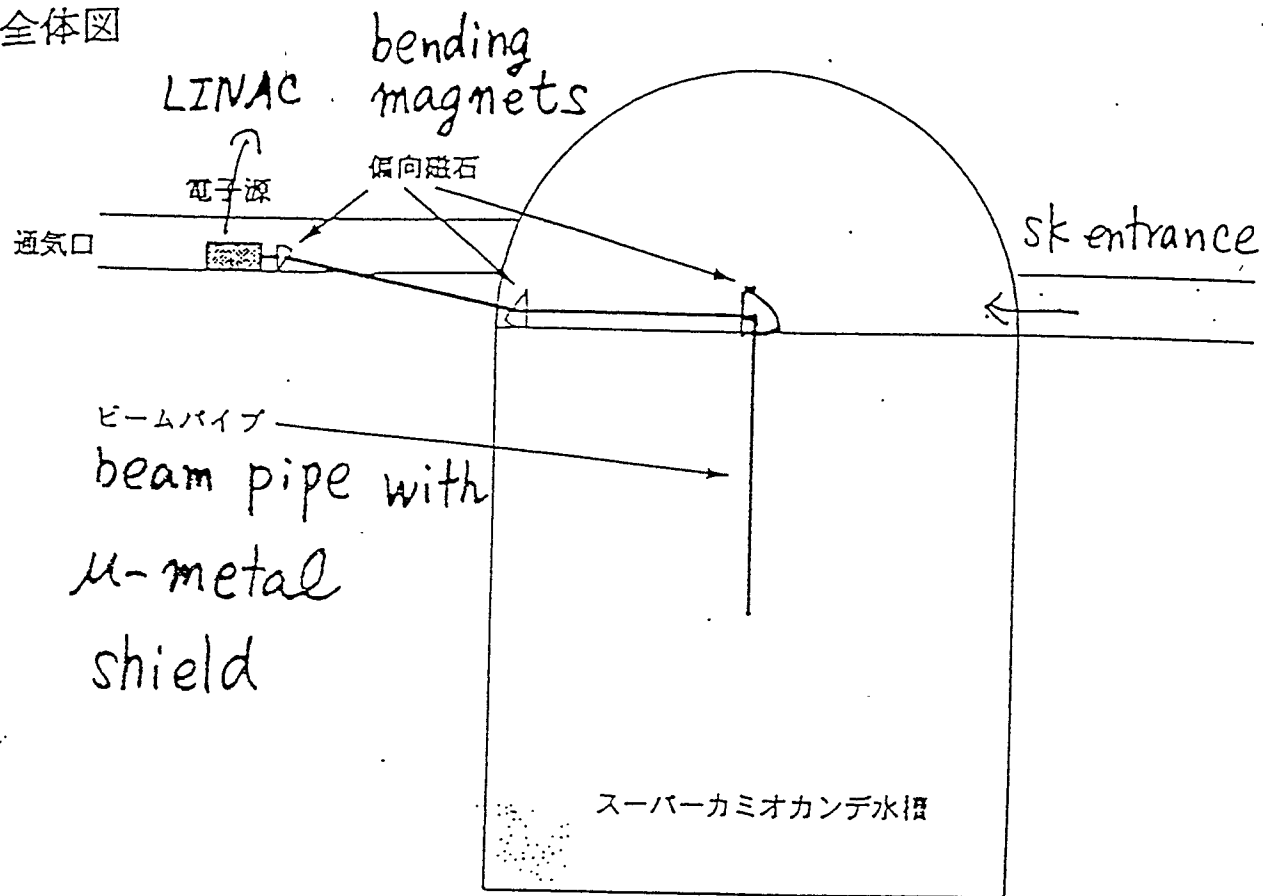 全体図
bending
magnets
LINAC
電子源
偏向磁石
通気口
sk entrance
ビームパイプ
beam pipe with
μ-metal
shield
スーパーカミオカンデ水槽